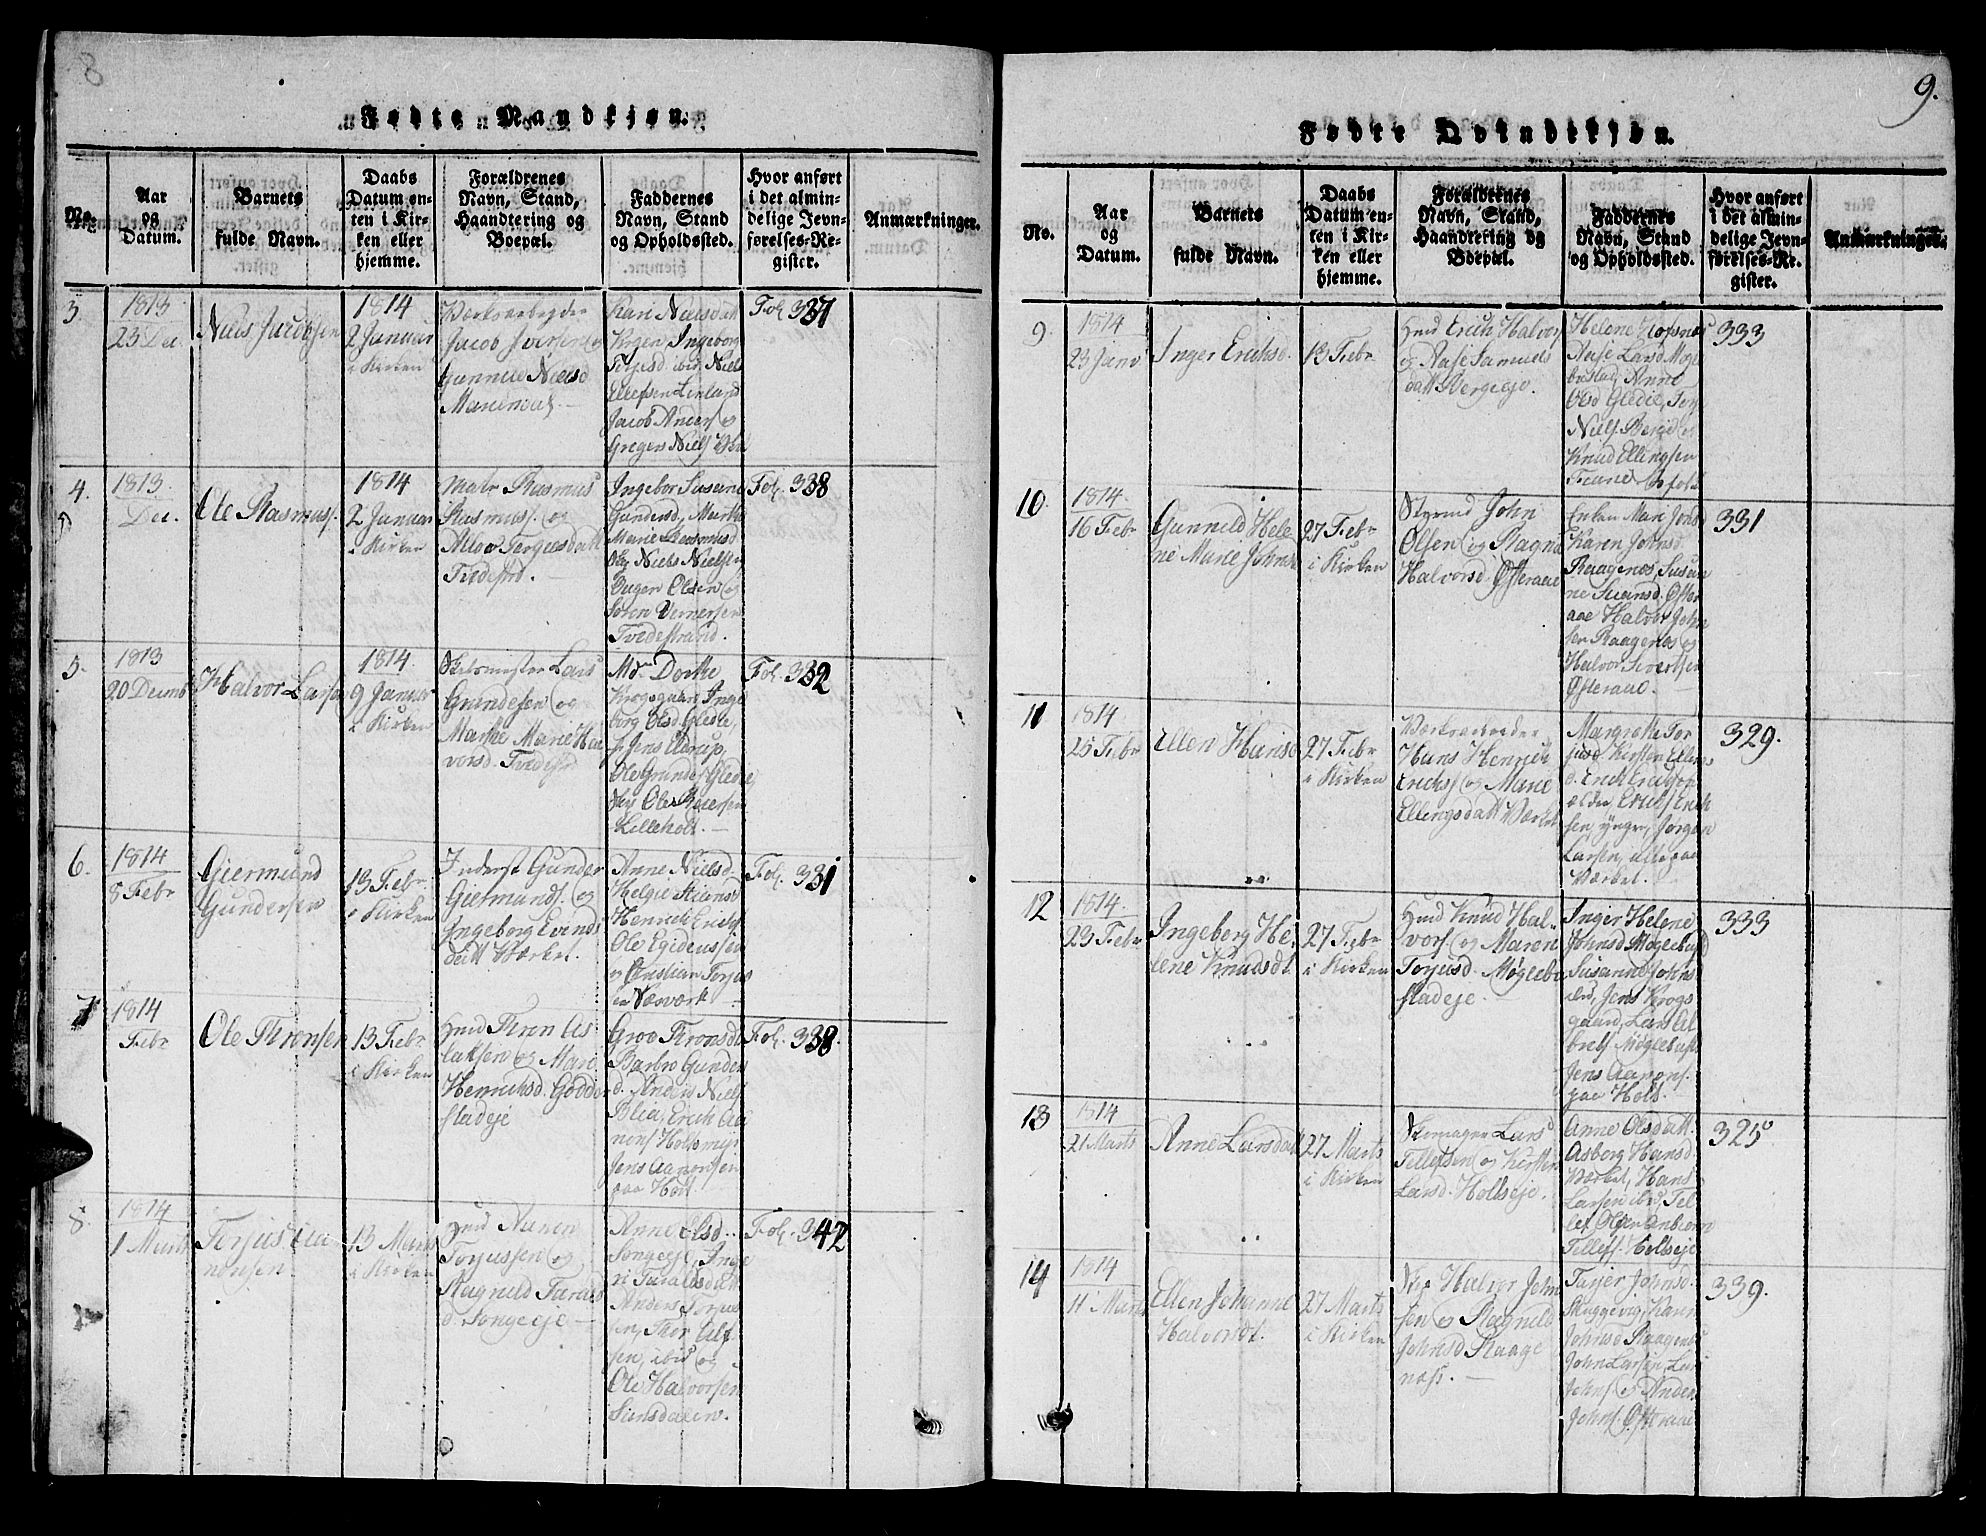 8
Fødte Mandkjøn.
No.
Aar
og
Datum.
Barnets
fulde Navn.
Daabs
Datum en-
ten i Kir-
ken eller
hjemme.
Forældrenes
Navn, Stand,
Haandtering og
Boepæl.
Faddernes
Navn, Stand
og Opholdssted.
Hvor anført
i det almin-
delige Jevn-
førelses-Re-
gister.
Anmærkninger.
3.
1813
23 Dec
Niels Jacobsen
1814
2 Januar
i Kirken
Værksarbeyder
Jacob Iversen og
Gunnild Nielsd
Kari Nielsdatt
Ingeborg
Torjusd. ibid. Niels
Ellefsen Linland
Jacob Anders. og
Greger Niels.
Fol. 337
4.
1813.
Dec.
Ole Rasmuss.
1814
2 Januar
i Kirken
Matr Rasmus
Rasmuss. og
Tergusdatt
Tvedestrd.
Ingebor Susane
Gundersd, Marthe
Marie Rasmusd
Niels Nielsen
Olsen og
Søren Vernersen
Tvedestrand.
Fol. 338
5.
1813
20 Decmb
Halvor Larsen
1814.
9 Januar
i Kirken
Skolemester Lars
Gundersen og
Marthe Marie Hal
vorsd. Tvedestrd
Md. Dorthe
Krogsgaard, Inge
borg Olsd. Gledie,
Jens Eldrup,
Ole Gunders. Gledie
Ole Reiersen
Lilleholt.
Fol. 332
6.
1814
8 Febr
Giermund
Gundersen
13 Febr.
i Kirken
Inderst Gunder
Giermunds. og
Ingeborg Evinds
datt Værket.
Anne Nielsd.
Helgie Stiensd
Henrich Erichs.
Ole Egideussen
og Christian Torjus
Fol. 331
7
1814
Febr
Ole Thronsen
13 Febr
i Kirken
Hmd Thron As
laksen og Mari
Henrichsd. Godder
stadeje
Groe Thronsd.
Barbro Gunders
d. Anders Niels.
Blia, Erich Aa
rons. Holtsmyr
Jens Aaronsen
paa Holt.
Fol. 338.
8.
1814
1 Marts
Torjus Aa
ronsen.
13 Marts
i Kirken
Hmd Aanen
Torjussen og
Ragnild Tarald
d. Songeeje
Anne Olsd.
Songeeje, Inge
ri Taralsdatt
Anders Torjus
sen, Thor Alf
sen, ibid og
Ole Halvorsen
Sunsdalen.
Fol. 342
9.
Fødte Qvindekjøn.
No.
Aar
og
Datum.
Barnets
fulde Navn.
Daabs
Datum en-
ten i Kir-
ken eller
hjemme.
Forældrenes
Navn, Stand,
Haandtering og
Boepæl.
Faddernes
Navn, Stand
og Opholdssted.
Hvor anført
i det almin-
delige Jevn-
førelses-Re-
gister.
Anmærkninger.
9
1814
23 Janv
Inger Erichsd.
13 Febr
Hmd Erich Halvors.
og Aase Samuels
datt Bergeeje.
Helene Olofsnes
Aase Larsd. Møge
bustad, Anne
Olsd Gledie, Torj
Niels. Berge og
Knud Ellingsen
333
10.
1814.
16 Febr
Gunneld Hele
ne Marie Johnsd
27 Febr
i Kirken
Styrmd John
Olsen og Ragna
Halvorsd. Østeraae
Enken Mari Jonsd
Karen Johnsd
Raagenæs, Susan
ne Svensd. Øster
aae Halvor John
sen Raagenæs og
Halvor Sivertsen
Østeraae.
331
11
1814
25 Febr
Ellen Hansd
27 Febr
i Kirken
Værksarbeider
Hans Henrich
Erichs. og Marie
Ellingsdatt Værket
Margrethe Tor
jusd. Kirsten Ellens
d. Erich Erichsen
ældre, Erich Erich
sen, yngre, Jørgen
Larsen, alle paa
Værket.
329.
12
1814.
23 Febr
Ingeborg He-
lene Knudsdt.
27 Febr
i Kirken
Hmd Knud Hal
vors. og Maren
Torjusd. Møglebu
stadeje.
Inger Helene
Johnsd Møglebust
Susanne Johns
ibid, Jens Krogs
gaard, Lars Al
brets. Møglebust
Jens Aarons.
paa Holt.
333
13
1814
21 Marts
Anne Larsdatt
27 Marts
i Kirken
Skomager Lars
Tellefsen og Kirsten
Larsd. Holtseje.
Anne Olsdatt.
Asborg Hansd
Værket, Hans
Larsen ibid Tel
lef Olsen Anbiørn
Tellefs. Holtseje
325
14
1814
11 Marts
Ellen Johanne
Halvorsdt.
27 Marts
i Kirken
Skp Halvor John
sen og Ragnild
Johnsd Raage
næss.
Tarjer Johnsd.
Skuggevig, Karen
Johnsd Raagenæs
John Larsen, Lars
Johns. og Anders
Johns. Østeraae
339.